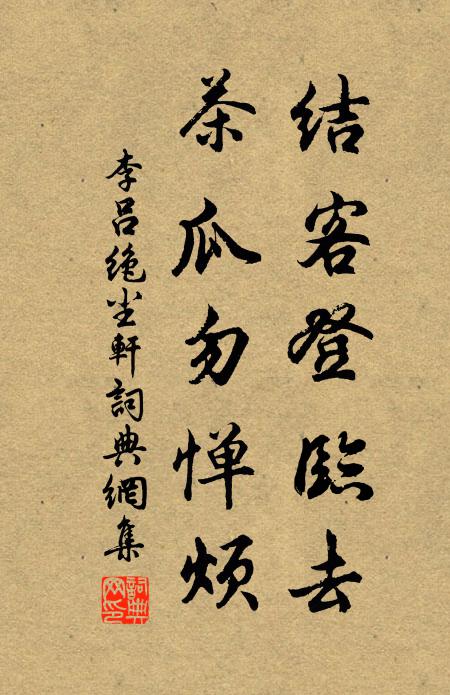 结客登臨去
茶瓜勿惮烦
李吕绝尘軒詞典網集
詞典網印